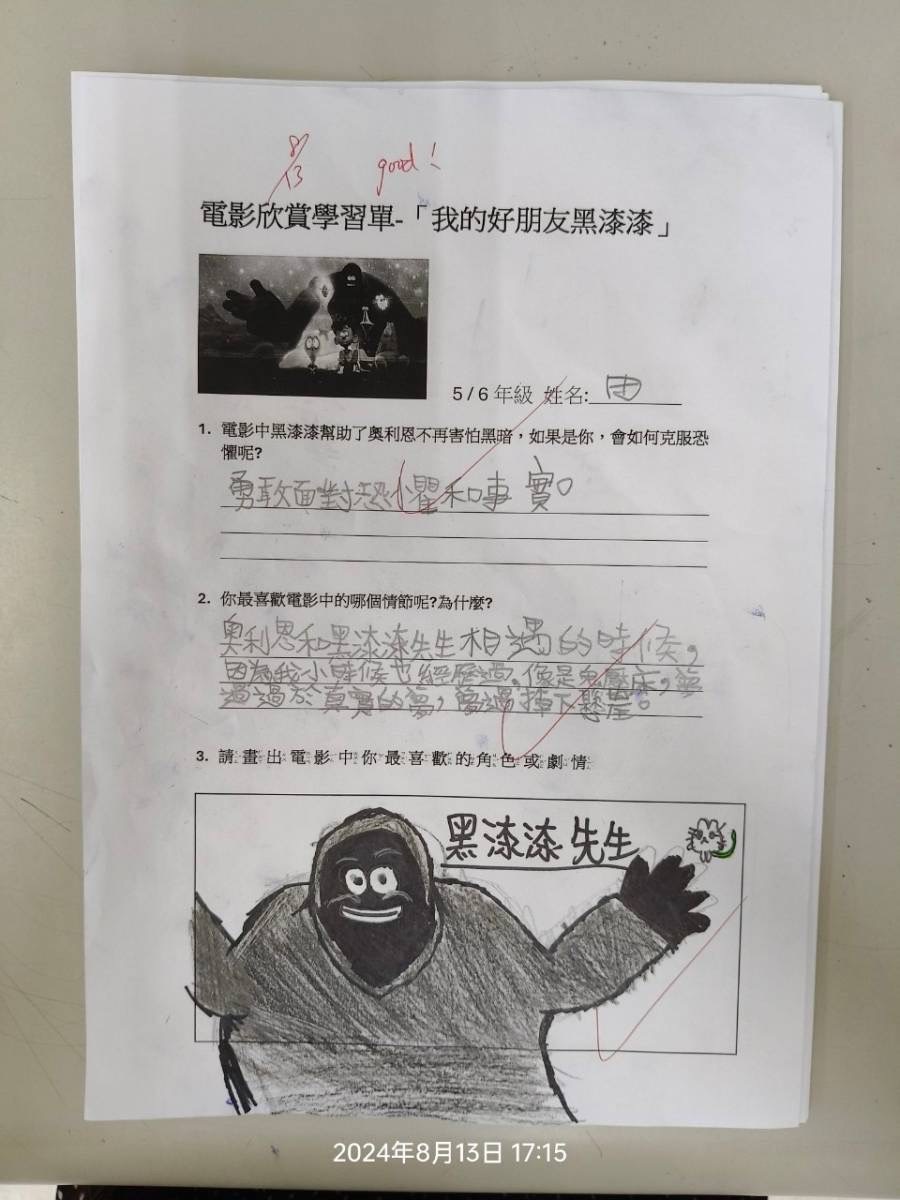 8/13 good!
電影欣賞學習單-「我的好朋友黑漆漆」
5 / 6 年級 姓名: 田
1. 電影中黑漆漆幫助了奧利恩不再害怕黑暗，如果是你，會如何克服恐
懼呢?
勇敢面對恐懼和事實。
2. 你最喜歡電影中的哪個情節呢?為什麼?
奧利恩和黑漆漆先生相遇的時候，
因為我小時候也經歷過。像是鬼壓床，夢
過過於真實的夢，夢過摔下懸崖。
3. 請畫出電影中你最喜歡的角色或劇情
黑漆漆先生
2024年8月13日 17:15